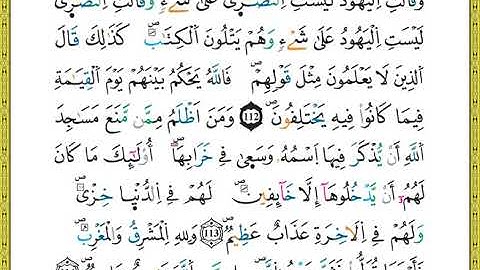 وَقَالَتِ اِلْيَهُودُ لَيْسَتِ اِلنَّصَٰرَىٰ عَلَىٰ شَےْءٖ وَقَالَتِ اِلنَّصَٰرَىٰ
لَيْسَتِ اِلْيَهُودُ عَلَىٰ شَےْءٖ وَهُمْ يَتْلُونَ اَلْكِتَٰبَۖ كَذَٰلِكَ قَالَ
اَلذِينَ لَا يَعْلَمُونَ مِثْلَ قَوْلِهِمْۖ فَاللَّهُ يَحْكُمُ بَيْنَهُمْ يَوْمَ اَلْقِيَٰمَةِ
فِيمَا كَانُواْ فِيهِ يَخْتَلِفُونَۖ 112 وَمَنَ اَظْلَمُ مِمَّن مَّنَعَ مَسَٰجِدَ
اَللَّهِ أَنْ يُّذْكَرَ فِيهَا اَسْمُهُۥ وَسَعَىٰ فِے خَرَابِهَاۖ أُوْلَٰٓئِكَ مَا كَانَ
لَهُمُۥٓ أَنْ يَّدْخُلُوهَآ إِلَّا خَآئِفِينَۖ لَهُمْ فِے اِلدُّنْيَا خِزْيٞۖ
وَلَهُمْ فِے اِلَاخِرَةِ عَذَابٌ عَظِيمٞۖ 113 وَلِلهِ اِلْمَشْرِقُ وَالْمَغْرِبُۖ